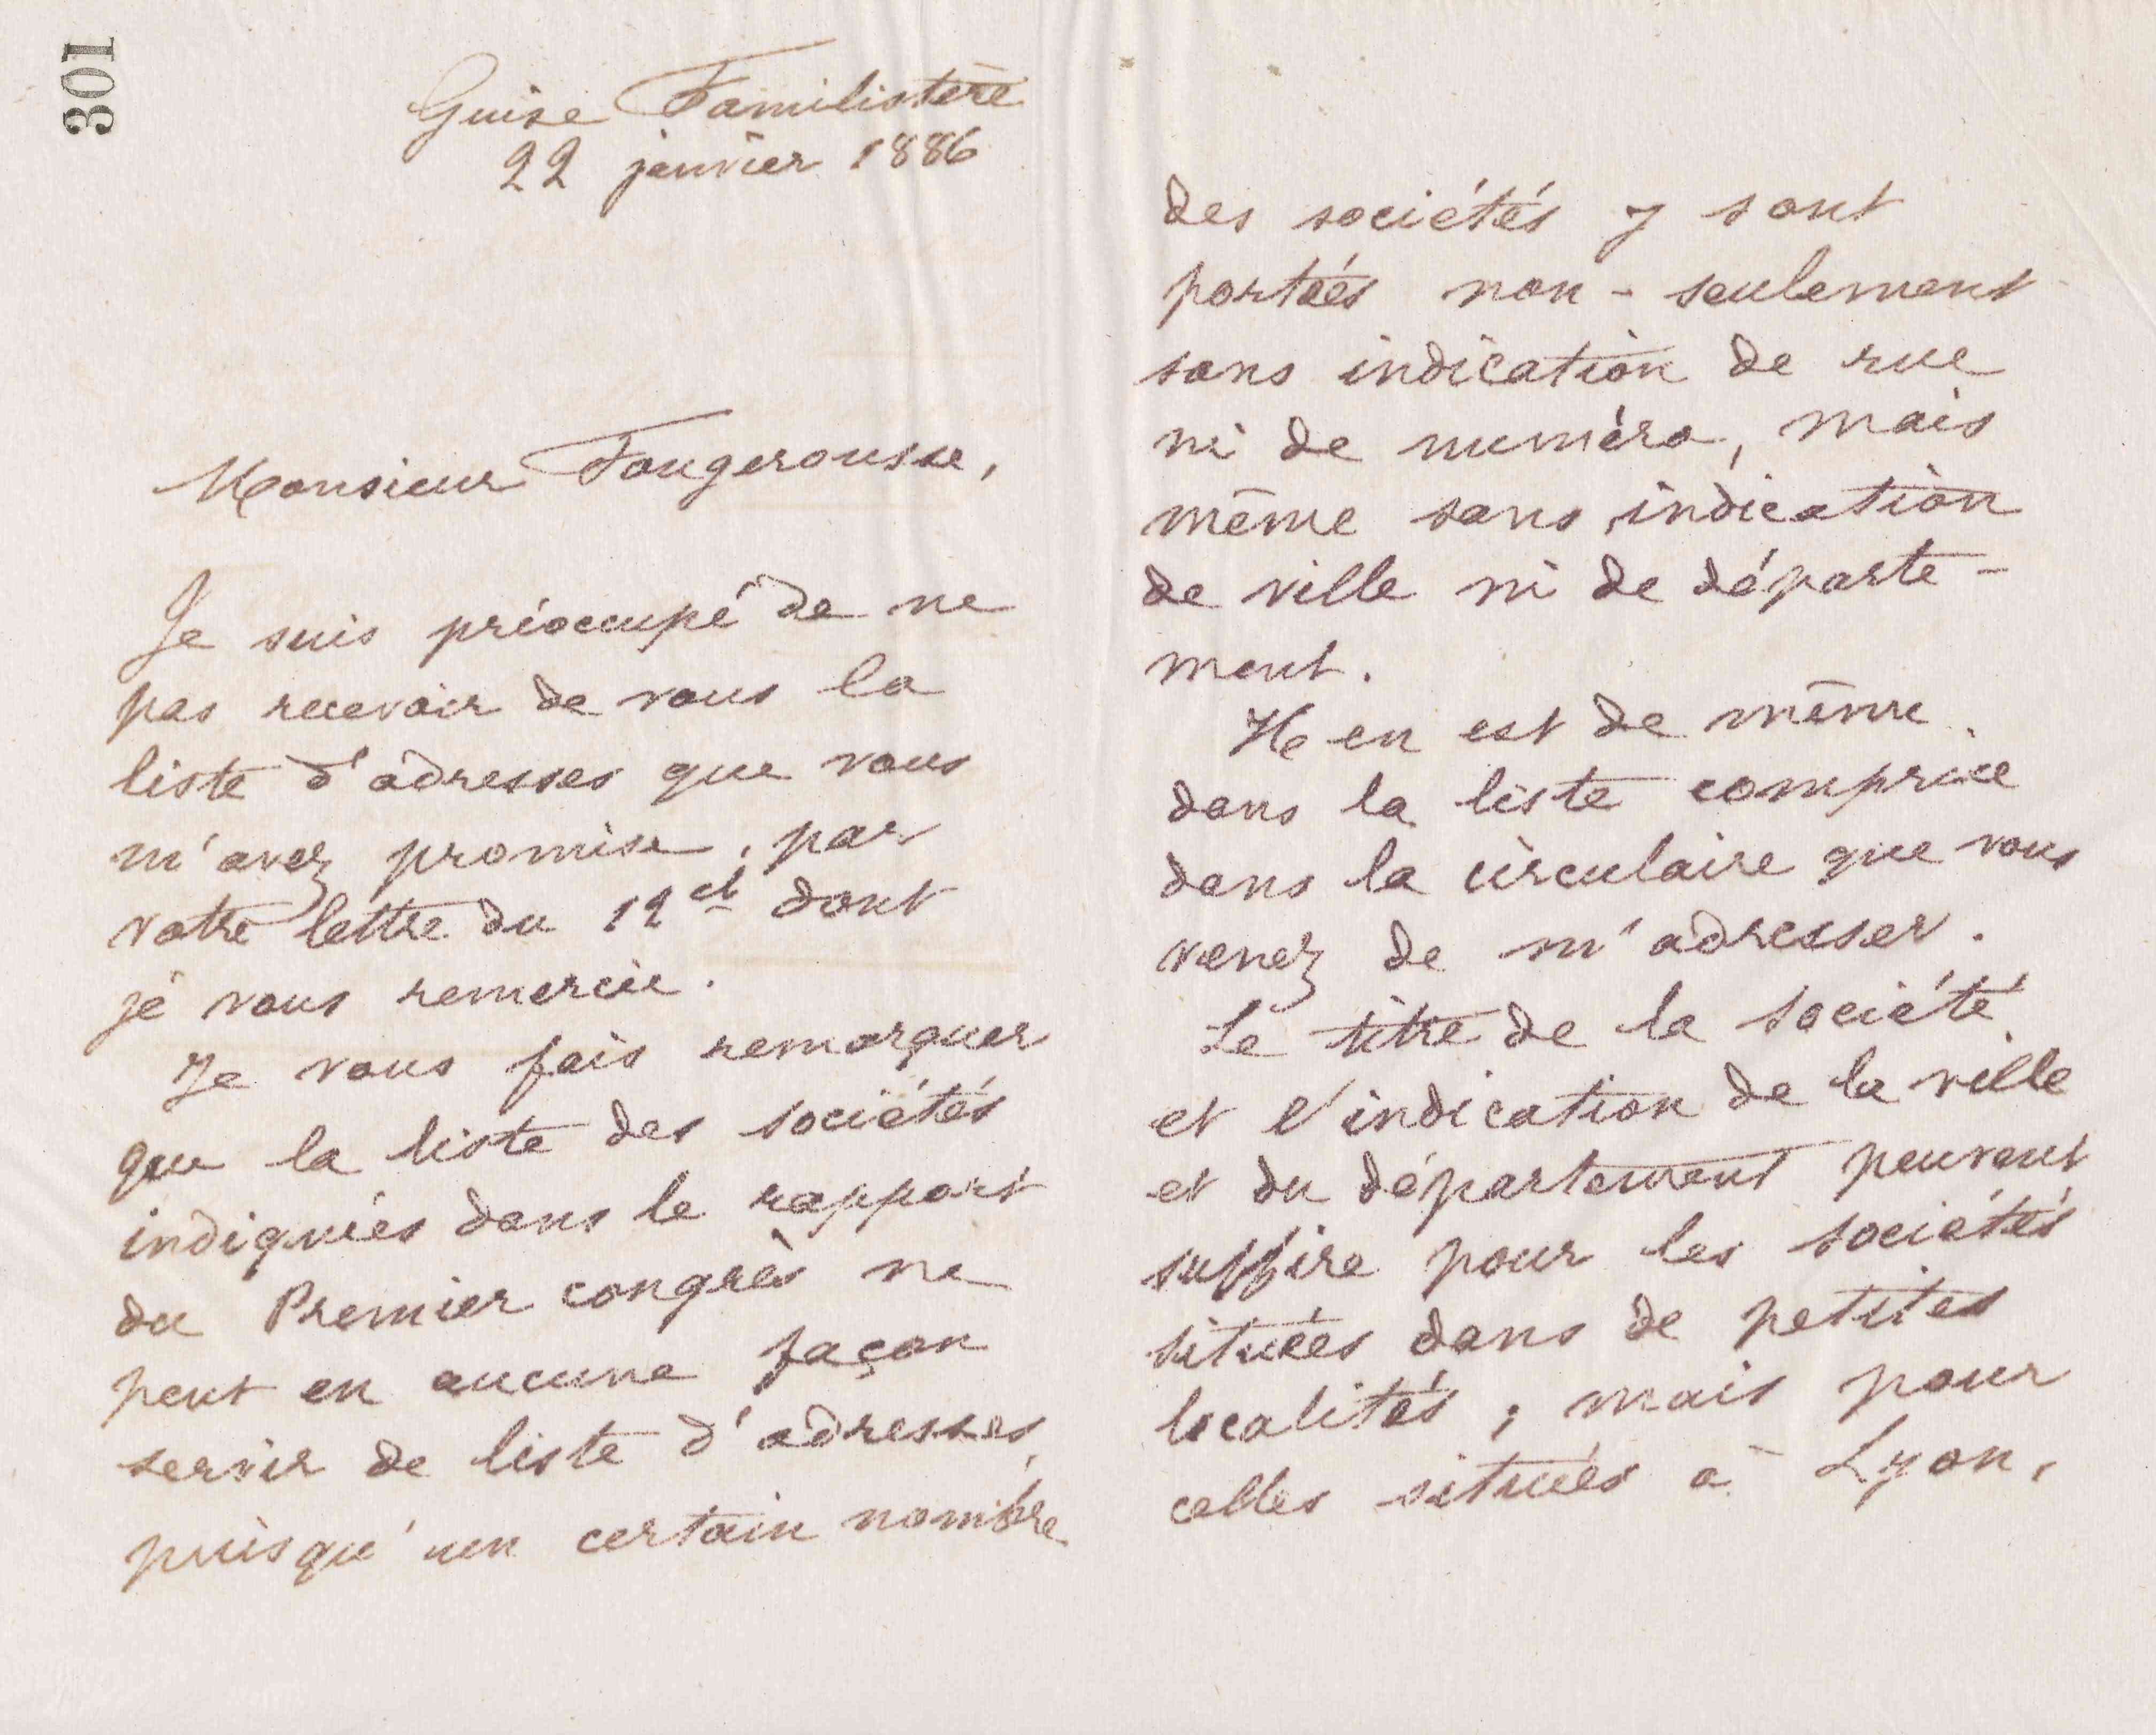 301
Guise Familistère
22 janvier 1886
Monsieur Fougerousse,
Je suis préoccupé de ne
pas recevoir de vous la
liste d'adresses que vous
m'avez promise, par
votre lettre du 12 ct dont
je vous remercie.
Je vous fais remarquer
que la liste des sociétés
indiquées dans le rapport
du Premier congrès ne
peut en aucune façon
servir de liste d'adresses,
puisqu'un certain nombre
des sociétés y sont
portées non-seulement
sans indication de rue
ni de numéro, mais
même sans indication
de ville ni de départe-
ment.
Il en est de même
dans la liste comprise
dans la circulaire que vous
venez de m'adresser.
Le titre de la société
et l'indication de la ville
et du département peuvent
suffire pour les sociétés
situées dans de petites
localités ; mais pour
celles situées à Lyon,